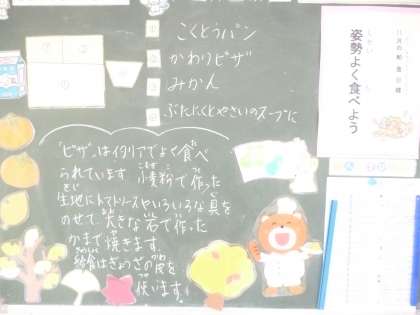 こくとうパン
かわりピザ
みかん
ぶたにくとやさいのスープに
姿勢よく食べよう
"ピザ"はイタリアでよく食べ
られています。小麦粉で作った
生地にトマトソースやいろいろな具を
のせて大きな石で作った
かまで焼きます。
給食はぎょうざの皮を
使います。